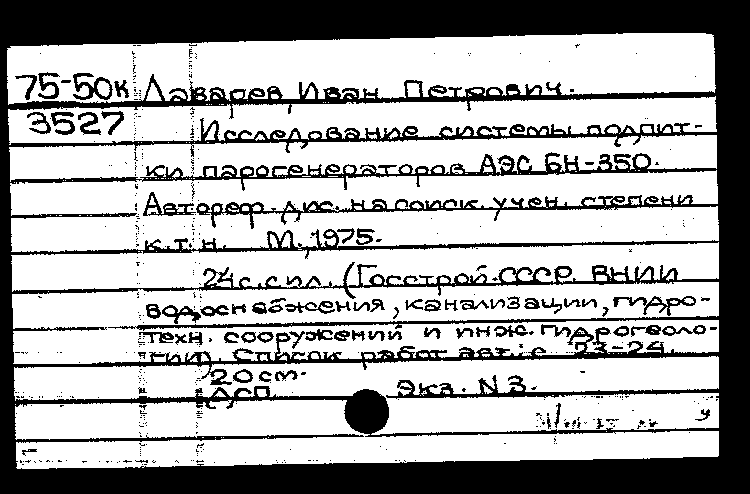 75-50к Лаварев, Иван Петрович.
3527 Исследование системы подпит-
ки парогенераторов АЭС БН-350.
Автореф. дис. на соиск. учен. степени
к.т.н. М., 1975.
24 с. с ил. (Госстрой СССР. ВНИИ
водоснабжения, канализации, гидро-
техн. сооружений и инж. гидрогеоло-
гии). Список работ авт.: с 23-24.
20 см.
ДСП Экз. N 3.